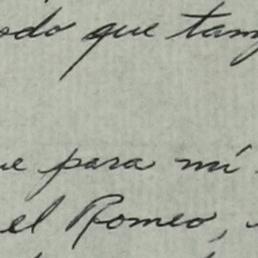 odo que tam
ue para mí
el Romeo,